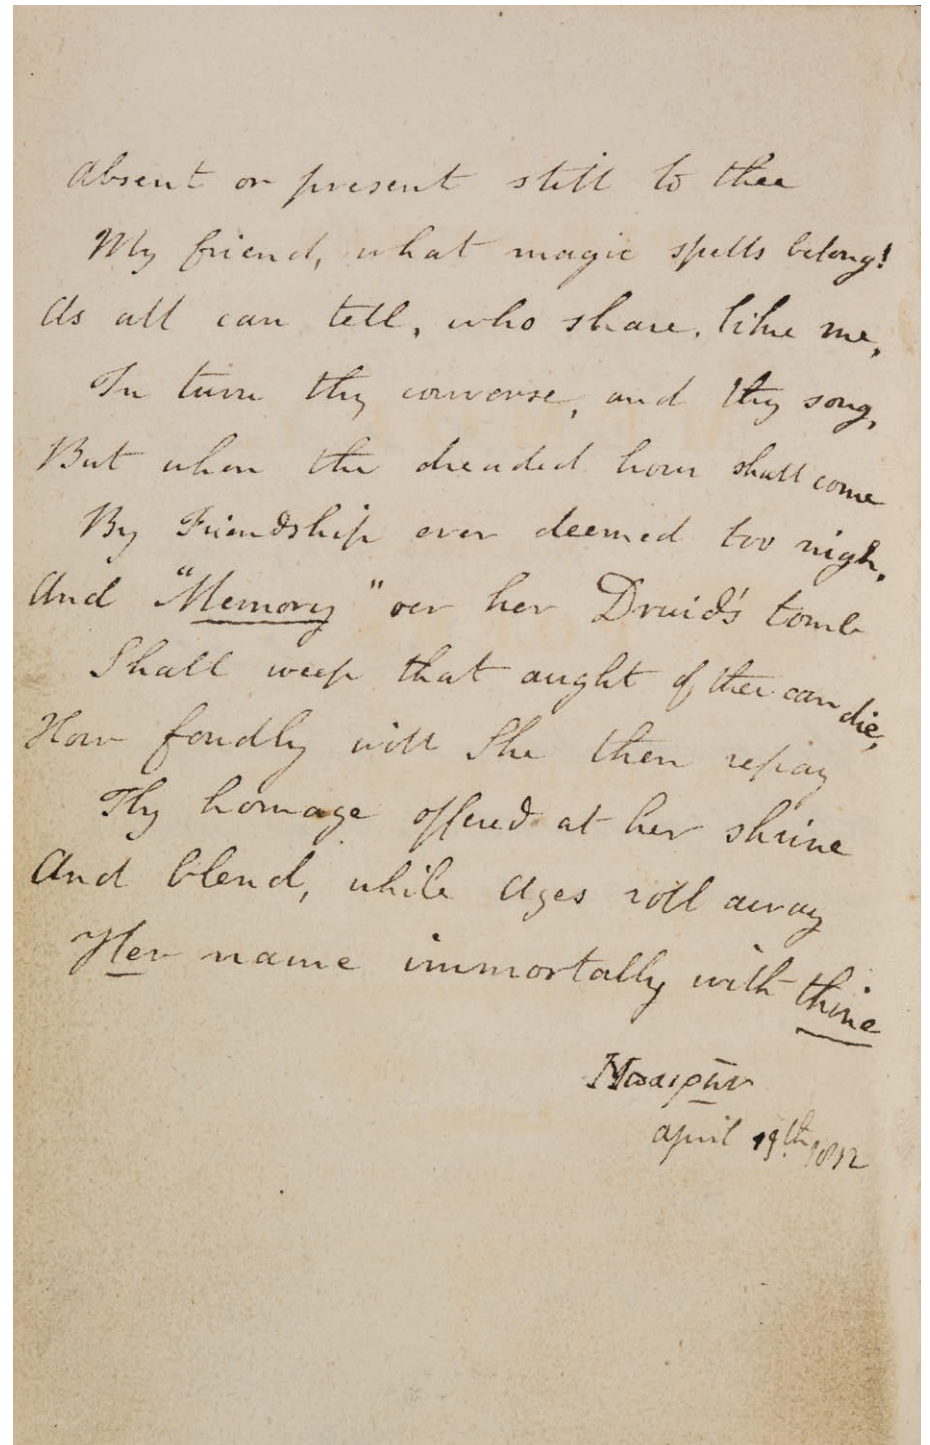 Absent or present still to thee
My friend, what magic spells belong!
As all can tell, who share, like me,
In turn thy converse, and thy song,
But when the dreaded hour shall come
By Friendship ever deemed too nigh,
And "Memory" oer her Druid's tomb
Shall weep that aught of thee can die,
How fondly will She then repay
Thy homage offered at her shrine
And blend, while Ages roll away
Her name immortally with thine
april 19th 1812